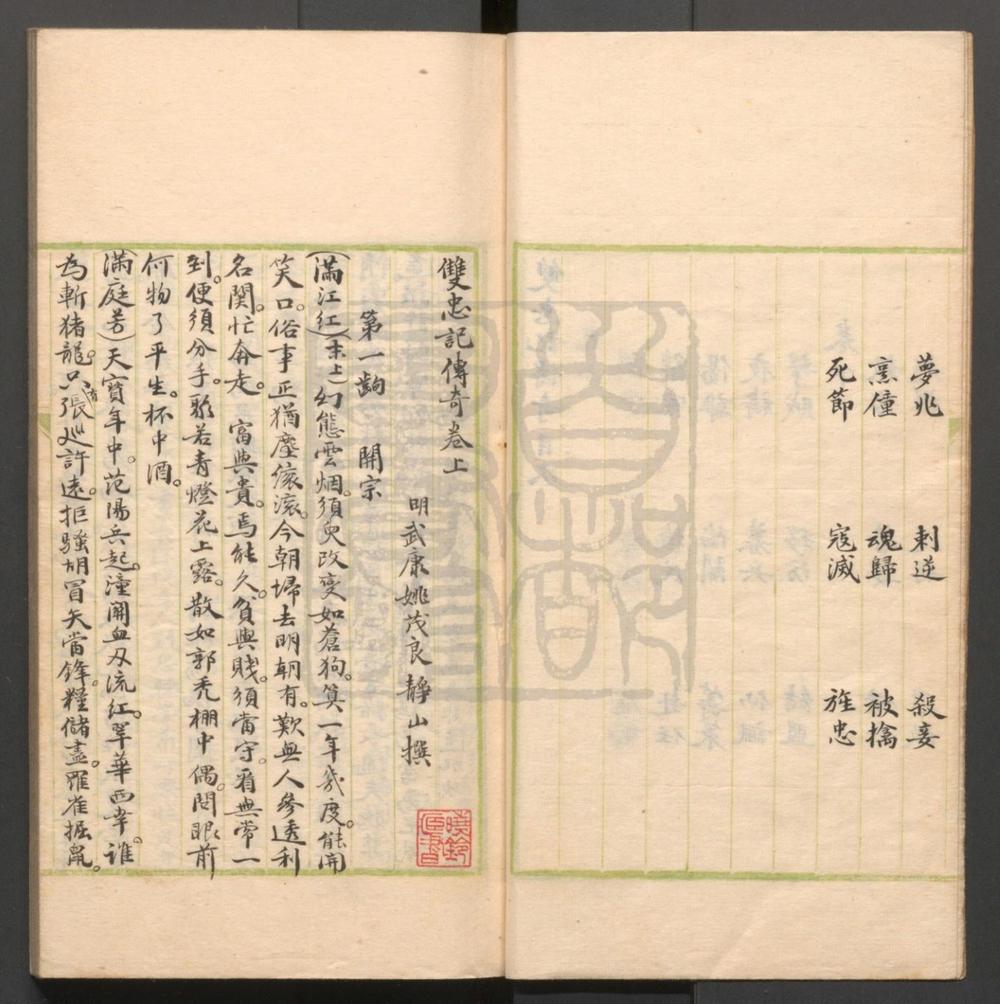 夢兆　刺逆　殺妾
烹僮　魂歸　被擒
死節　寇滅　旌忠
雙忠記傳奇卷上
明武康姚茂良靜山撰
第一齣　開宗
(滿江紅)(末上)幻態雲烟。須臾改變如蒼狗。算一年幾度。能開
笑口。俗事正猶塵滾滾。今朝歸去明朝有。歎無人參透利
名関。忙奔走。　富與貴。焉能久。貧與賤。須當守。看無常一
到。便須分手。歌若青燈花上露。散如郭禿棚中偶。問眼前
何物了平生。杯中酒。
(滿庭芳)天寶年中。范陽兵起。潼關血刃流紅。翠華西幸。誰
為斬猪龍。只有張巡許遠。拒騷胡冒矢當鋒。糧儲盡。羅雀掘鼠。
曉鈴
藏書